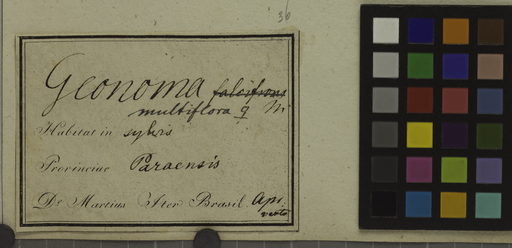 36
Geonoma falcifrons
multiflora ♀ M.
Habitat in sylvis
Provinciae Paraensis
Dr Martius Iter Brasil. Apr.